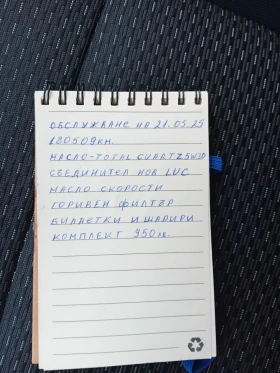 ОБСЛУЖВАНЕ НА 21.05.25
180509КМ.
МАСЛО-TOTAL CUARTZ 5W30
СЪЕДИНИТЕЛ НОВ LUC
МАСЛО СКОРОСТИ
ГОРИВЕН ФИЛТЪР
БИАЛЕТКИ И ШАРИРИ
КОМПЛЕКТ 950лв.